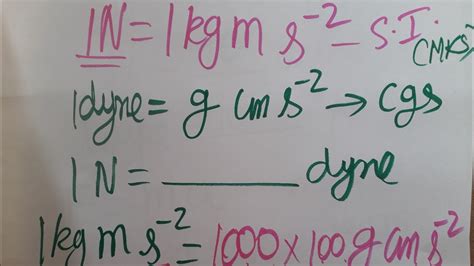 1N = 1kg m s⁻² – S.I. (MKS)
1dyne = g cm s⁻² → cgs
1 N = ______ dyne
1kg m s⁻² = 1000 × 100 g cm s⁻²